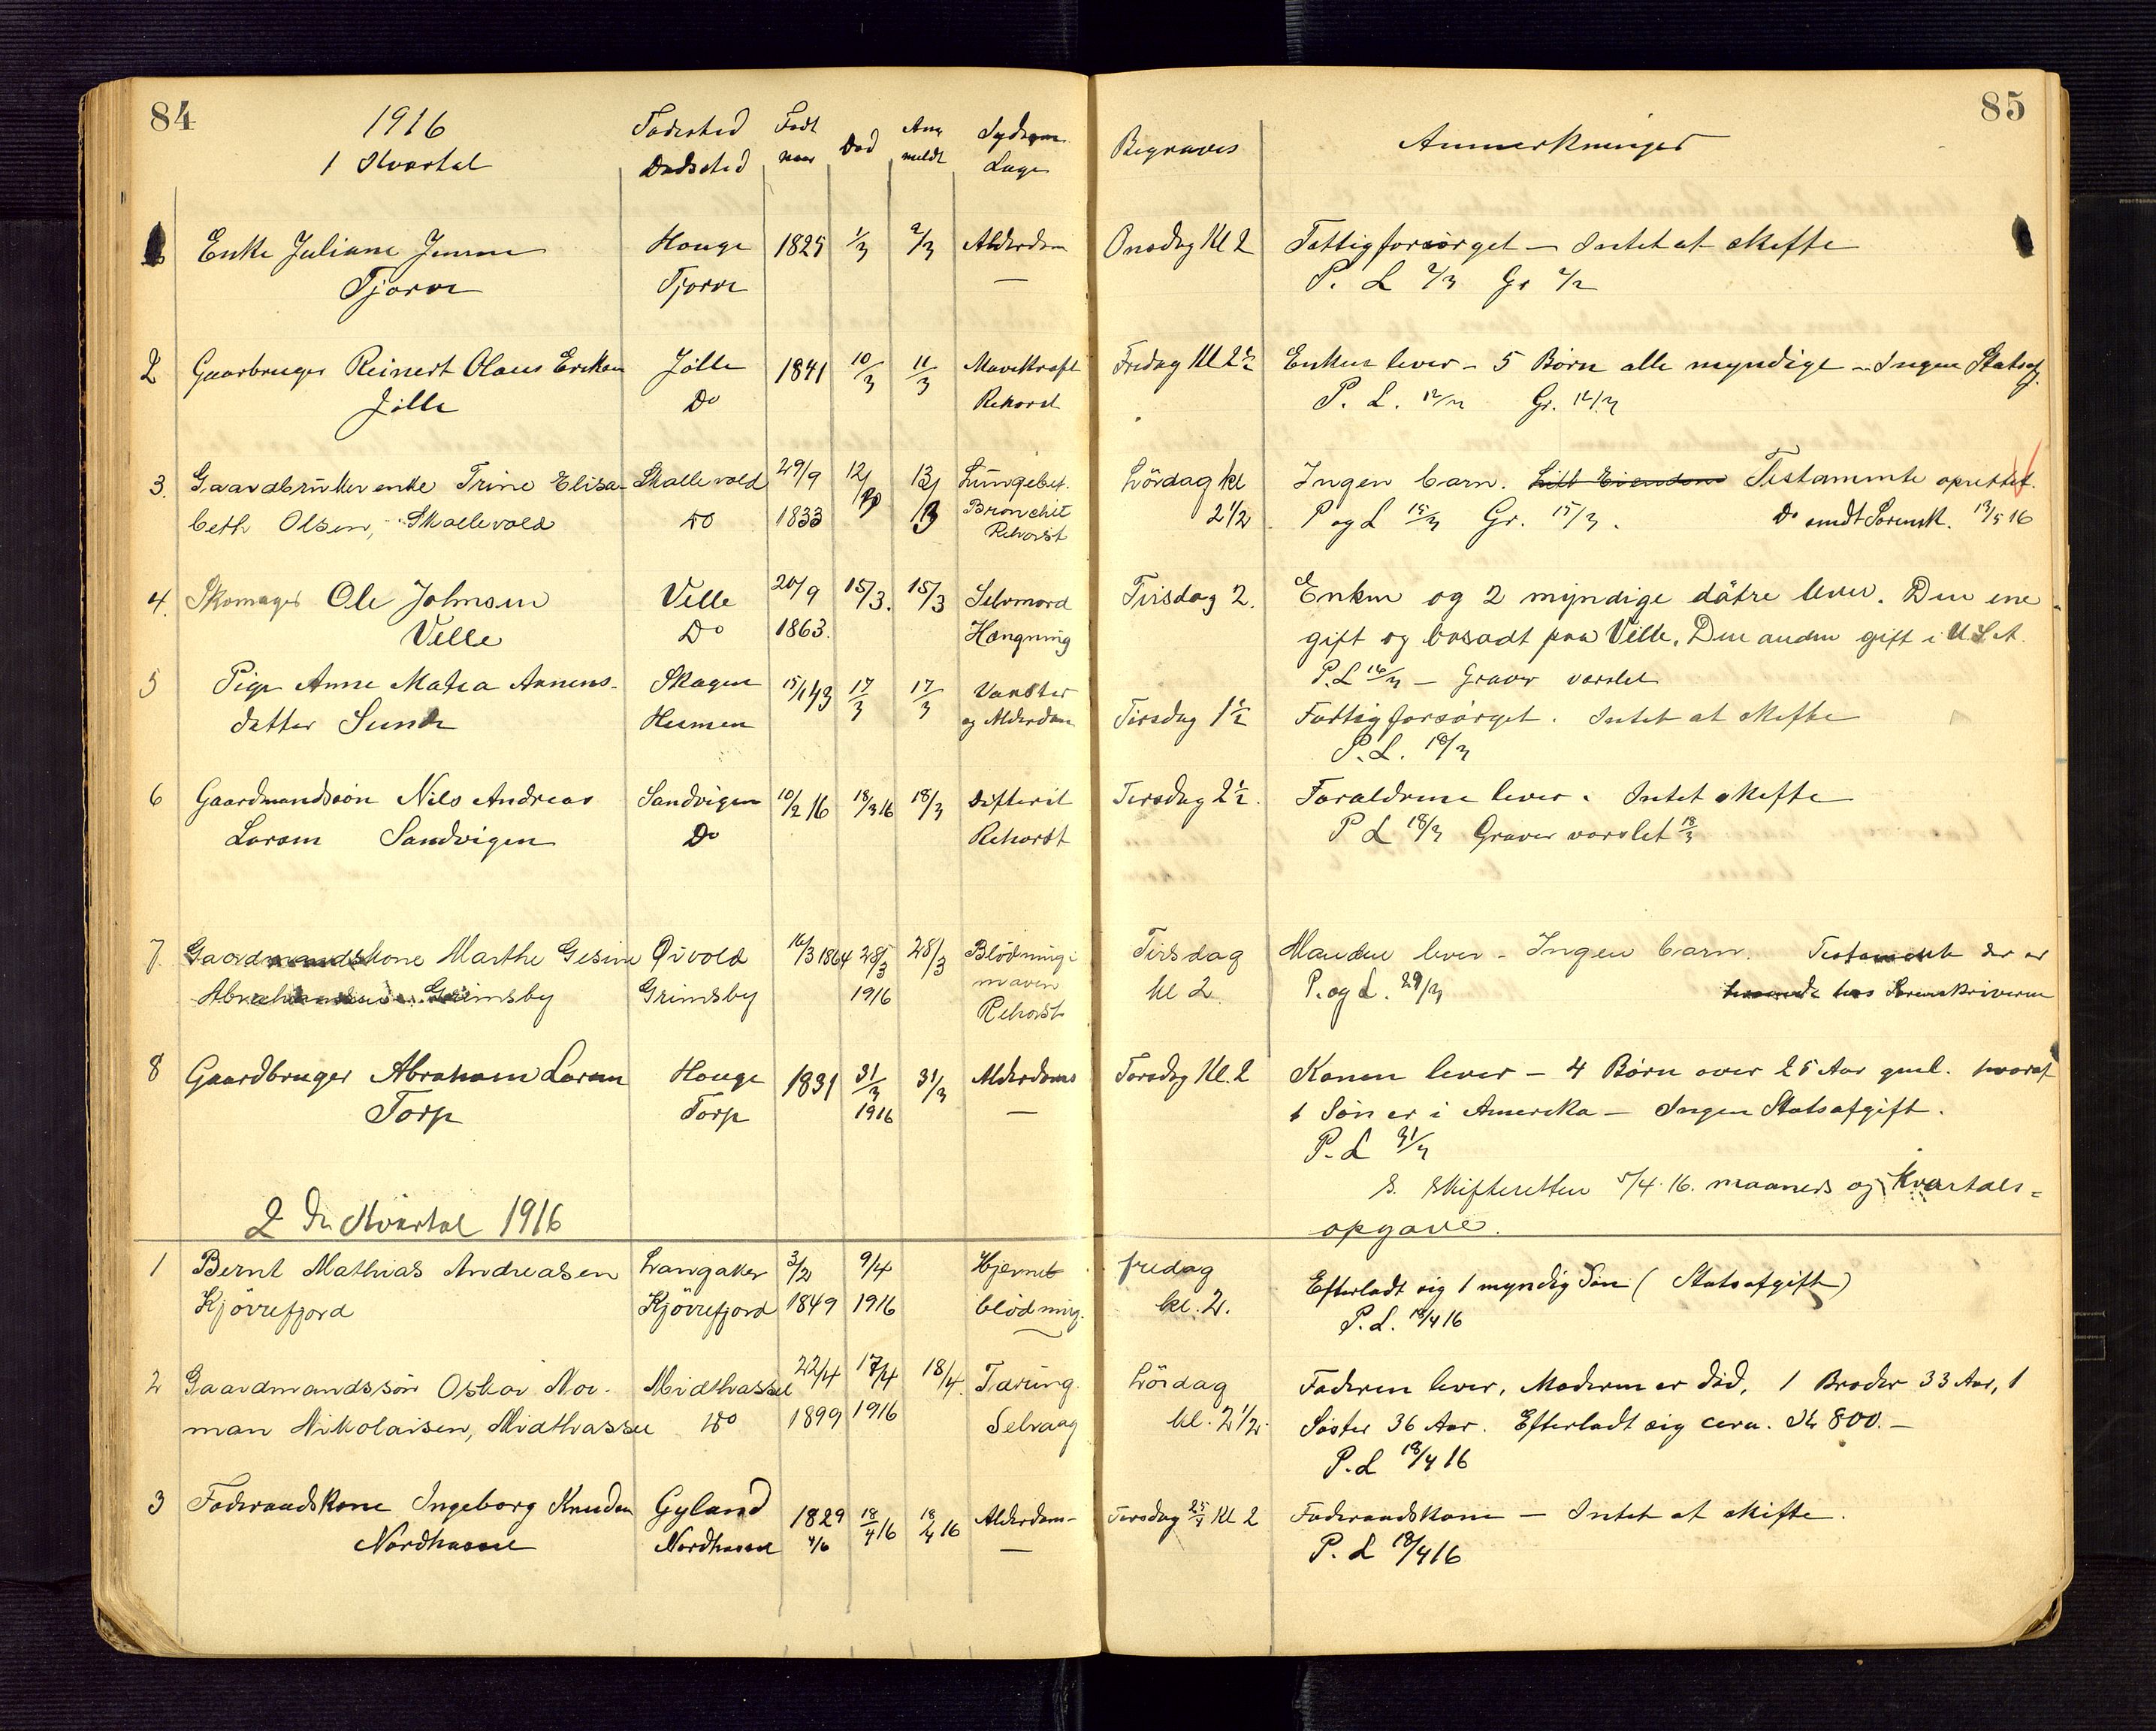 84
1916
1 Kvartal
Fødested
Dødssted
Født
naar
Død
Anmeldt
Sygdom
Læge
1 Enke Juliane Jensen Houge 1825 1/3 2/3 Alderdom
Tjorve Tjorve —
2 Gaarbruger Reinert Olaus Eriksen Jølle 1841 10/3 11/3 Mavekræft
Jølle Do Rehorst
3. Gaardbruker enke Trine Elisa- Skallevold 29/9 12/ 13/ Lungebet.
beth Olsen, Skallevold do 1833 3 Bronchit
Rehorst
4. Skomager Ole Johnsen Velle 20/9 15/3. 15/3 Selvmord
Velle Do 1863. Hængning
5 Pige Anne Matea Annens- Skagen 15/1 43 17/3 17/3 Vatster
datter Sunde Husmen og Alderdom
6 Gaardmandssøn Nils Andreas Sandvigen 10/2 16 18/3 16 18/3 Difterit
Larsen Sandvigen Do Rehorst
7. Gaardmandskone Marthe Gesine Øivold 16/3 1864 28/3 28/3 Blödning i
Grimsby Grimsby 1916 maven
Rehorst
8 Gaardbruger Abraham Larsen Houge 1831 31/3 31/3 Alderdoms
Torp Torp 1916 —
2 det Kvartal 1916
1 Bernt Mathias Andreasen Langaker 3/2 9/4 Hjerne
Kjörrefjord Kjörrefjord 1849 1916 blödning.
2 Gaardmandssön Oskar Nor- Midthassel 22/4 17/4 18/4. Tæring
man Nikolaisen, Midthassel do 1899 1916 Selvaag
3 Føderaadskone Ingeborg Knudsen Gyland 1829 18/4 16 18/4 16 Alderdom-
Nordhassel Nordhassel 4/6 —
85
Begraves
Anmerkninger
Onsdag Kl 2 Fattigforsørget — Intet at skifte
P. L 2/3 Gr
Fredag Kl 2½ Enken lever - 5 Børn alle myndige - Ingen Statsafg.
P. L. 12/3 Gr. 12/3
Lördag kl Ingen barn. Testamente oprettet.
2½ P og L 15/3 Gr. 15/3. Do sendt Sorensk. 13/5 16
Tirsdag 2. Enken og 2 myndige døtre lever. Den ene
gift og bosadt paa Velle. Den anden gift i U.S.A.
P.L 16/3 — Graver varslet
Tirsdag 1½ Fattigforsørget. Intet at skifte
P.L. 18/3
Tirsdag 2½. Forældrene lever. Intet skifte
P L 18/3 Graver varslet 18/3
Tirsdag Manden lever - Ingen barn. Testamente der er
kl 2. P. og L. 29/3 hos Sorenskriveren
Torsdag Kl. 2 Konen lever — 4 Børn over 25 Aar gml. hvoraf
1 Søn er i Amerika — Ingen Statsafgift.
P. L 31/3
S. Skifteretten 5/4 16. maaneds og Kvartals=
opgave.
fredag Efterladt sig 1 myndig Søn (Statsafgift)
kl. 2. P.L. 10/4 16
Lördag Faderen lever, Moderen er død, 1 Broder 33 Aar, 1
kl. 2½. Søster 36 Aar. Efterladt sig cira. Kr 800.—
P.L 18/4 16
Tirsdag 25/4 Kl 2 Føderaadskone — Intet at skifte.
P. L 18/4 16